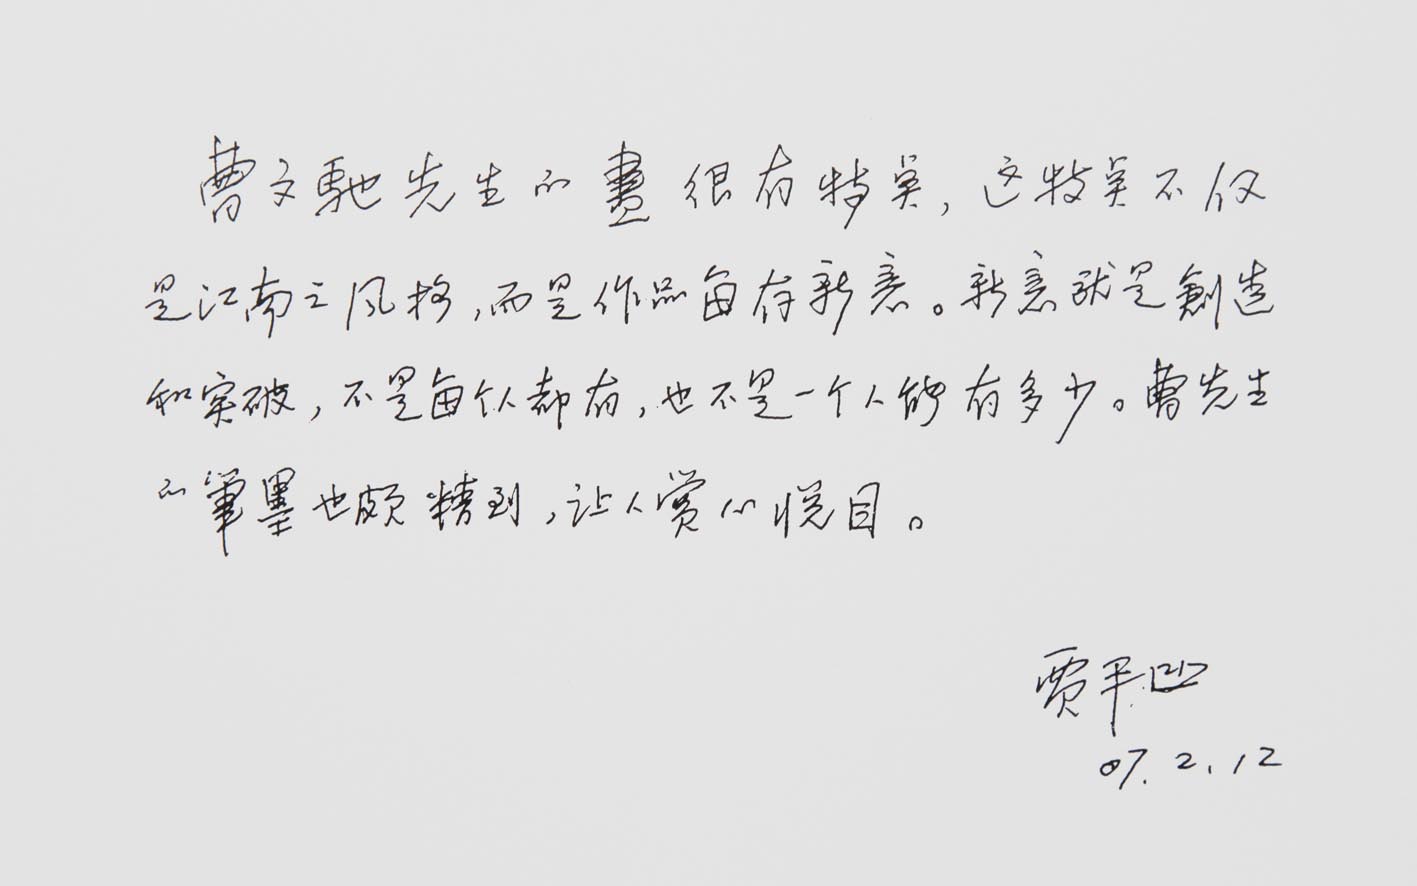 曹文馳先生的畫很有特点，这特点不仅
是江南之风格，而是作品每有新意。新意就是創造
和突破，不是每个人都有，也不是一个人能有多少。曹先生
的筆墨也颇精到，让人赏心悦目。
贾平凹
07.2.12